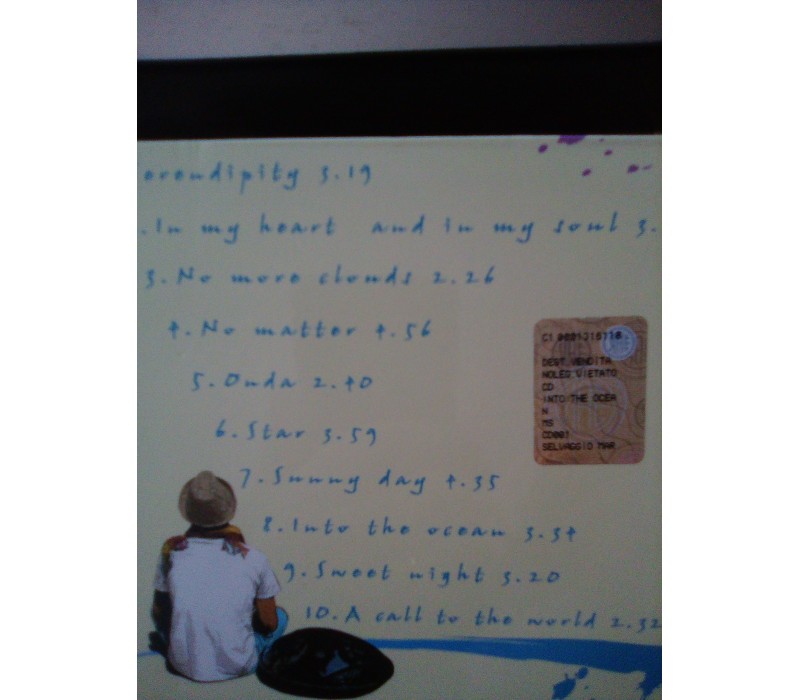 erendipity 3.19
.In my heart and in my soul 3.
3.No more clouds 2.26
4.No matter 4.56
5.Onda 2.40
6.Star 3.59
7.Sunny day 4.35
8.Into the ocean 3.34
9.Sweet night 3.20
10.A call to the world 2.32
DEST.VENDITA
NOLEG VIETATO
CD
INTO THE OCEA
N
MS
CD001
SELVAGGIO MAR